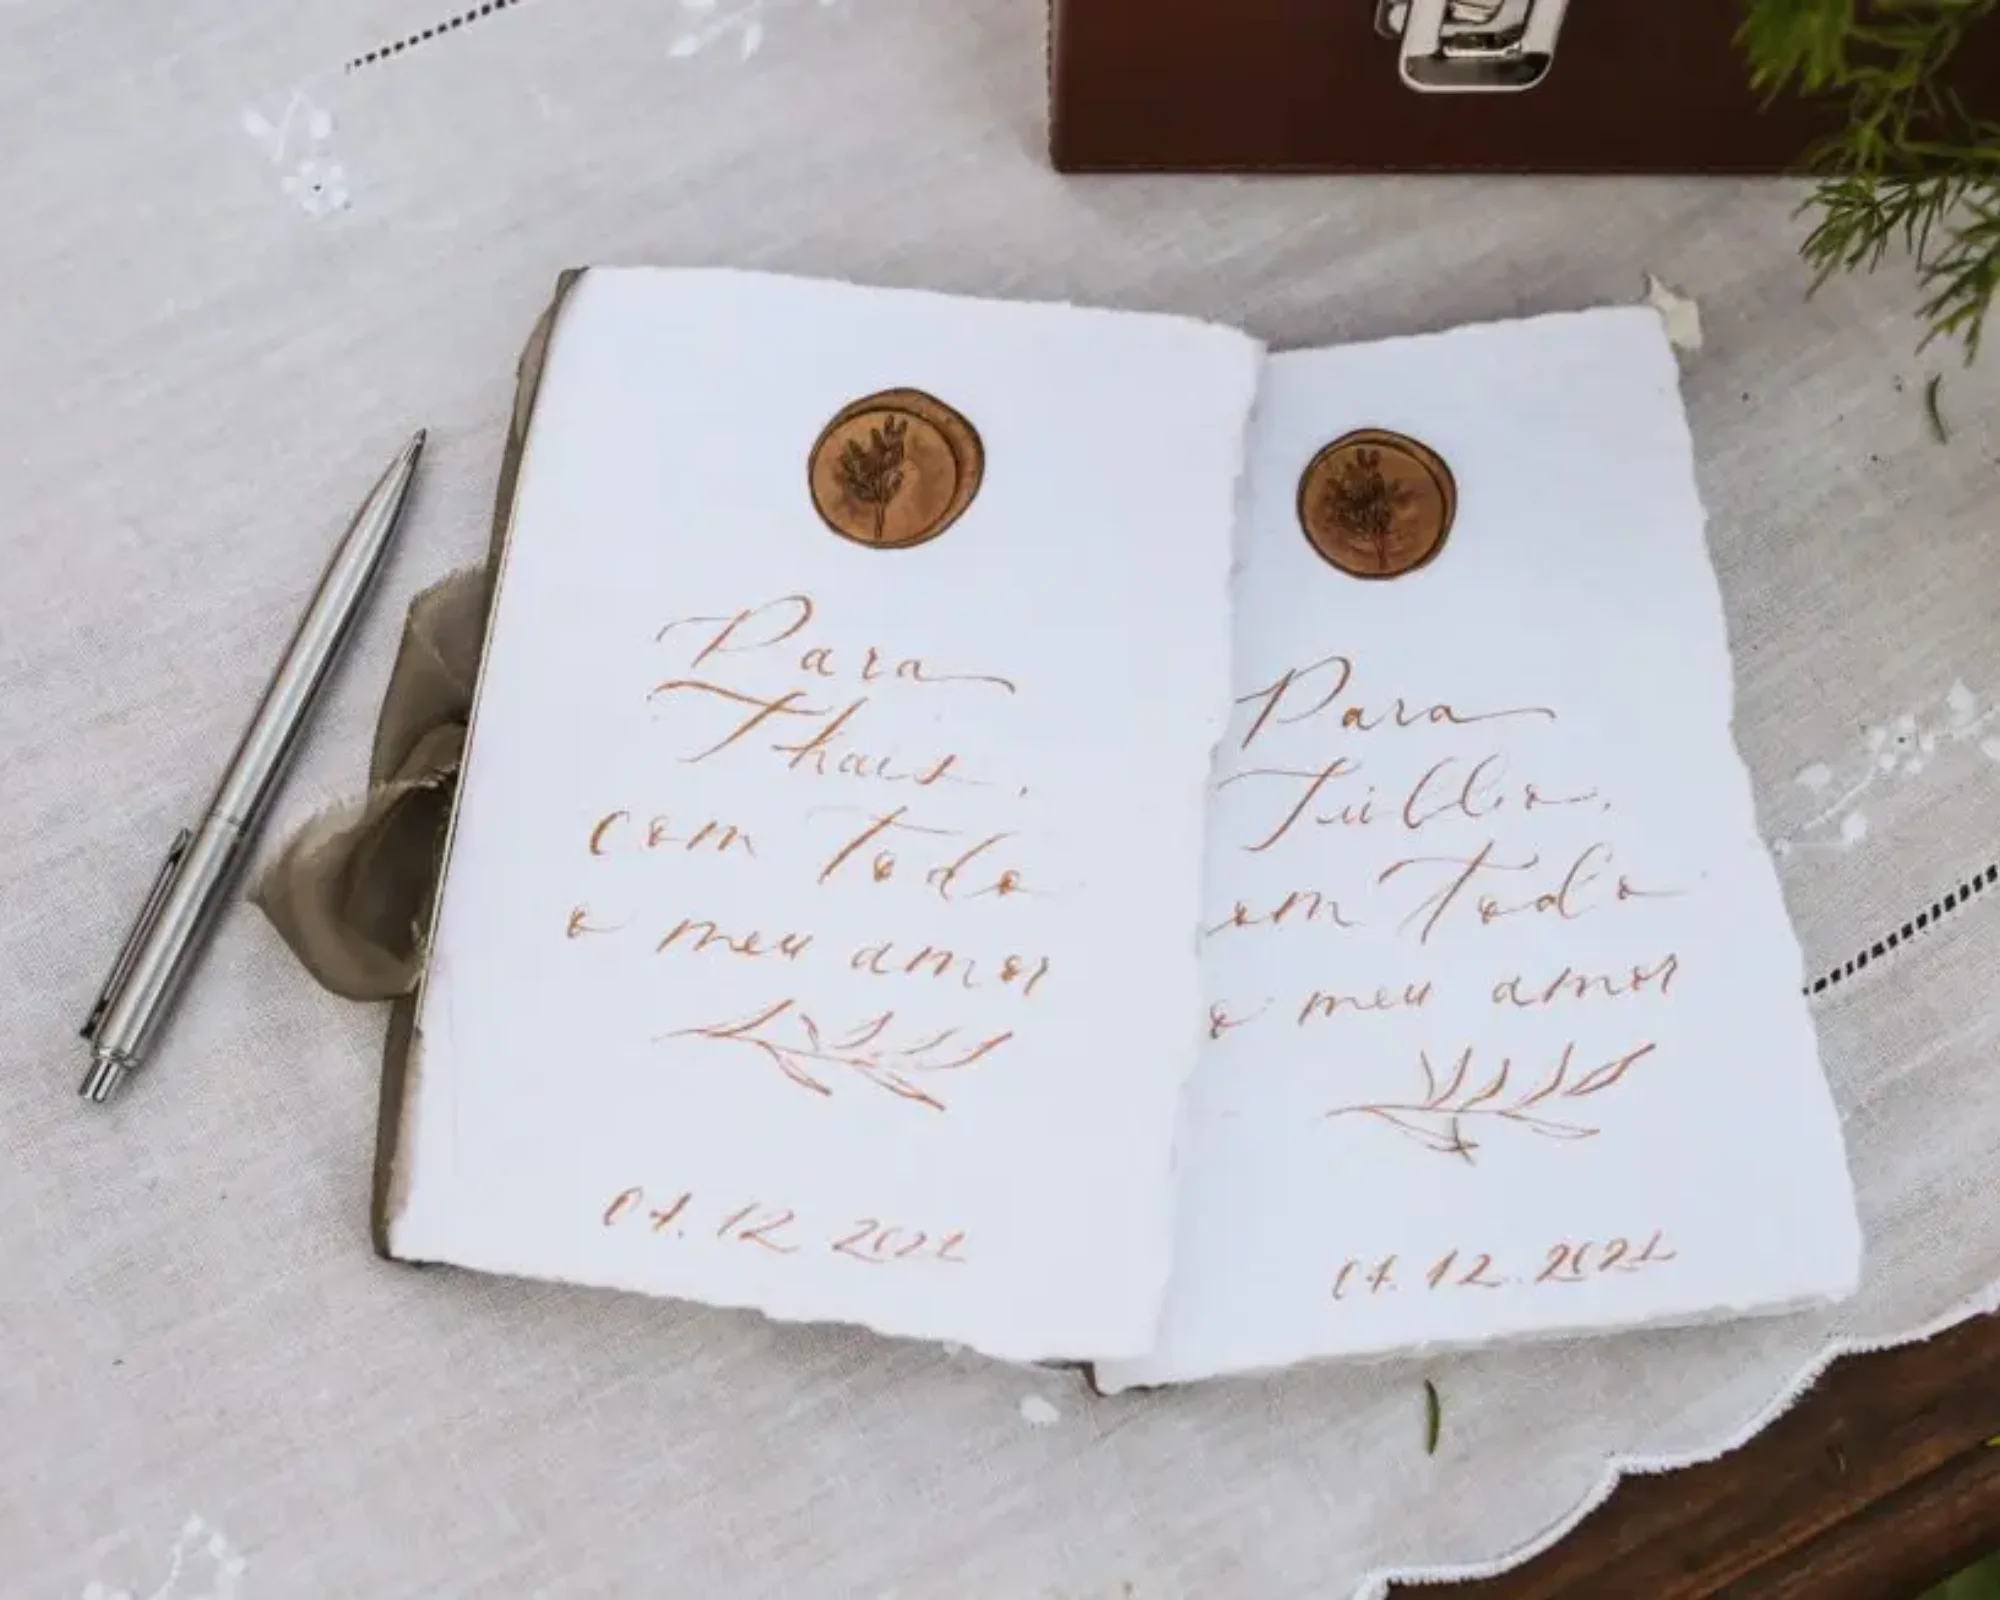 Para
Thais,
com todo
o meu amor
04.12.2021
Para
Túllio,
om todo
o meu amor
04.12.2021